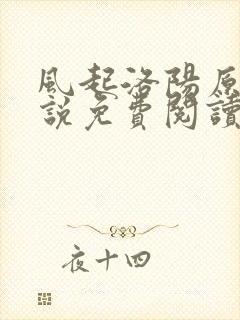 風起洛陽原
説免費閱讀
夜十四